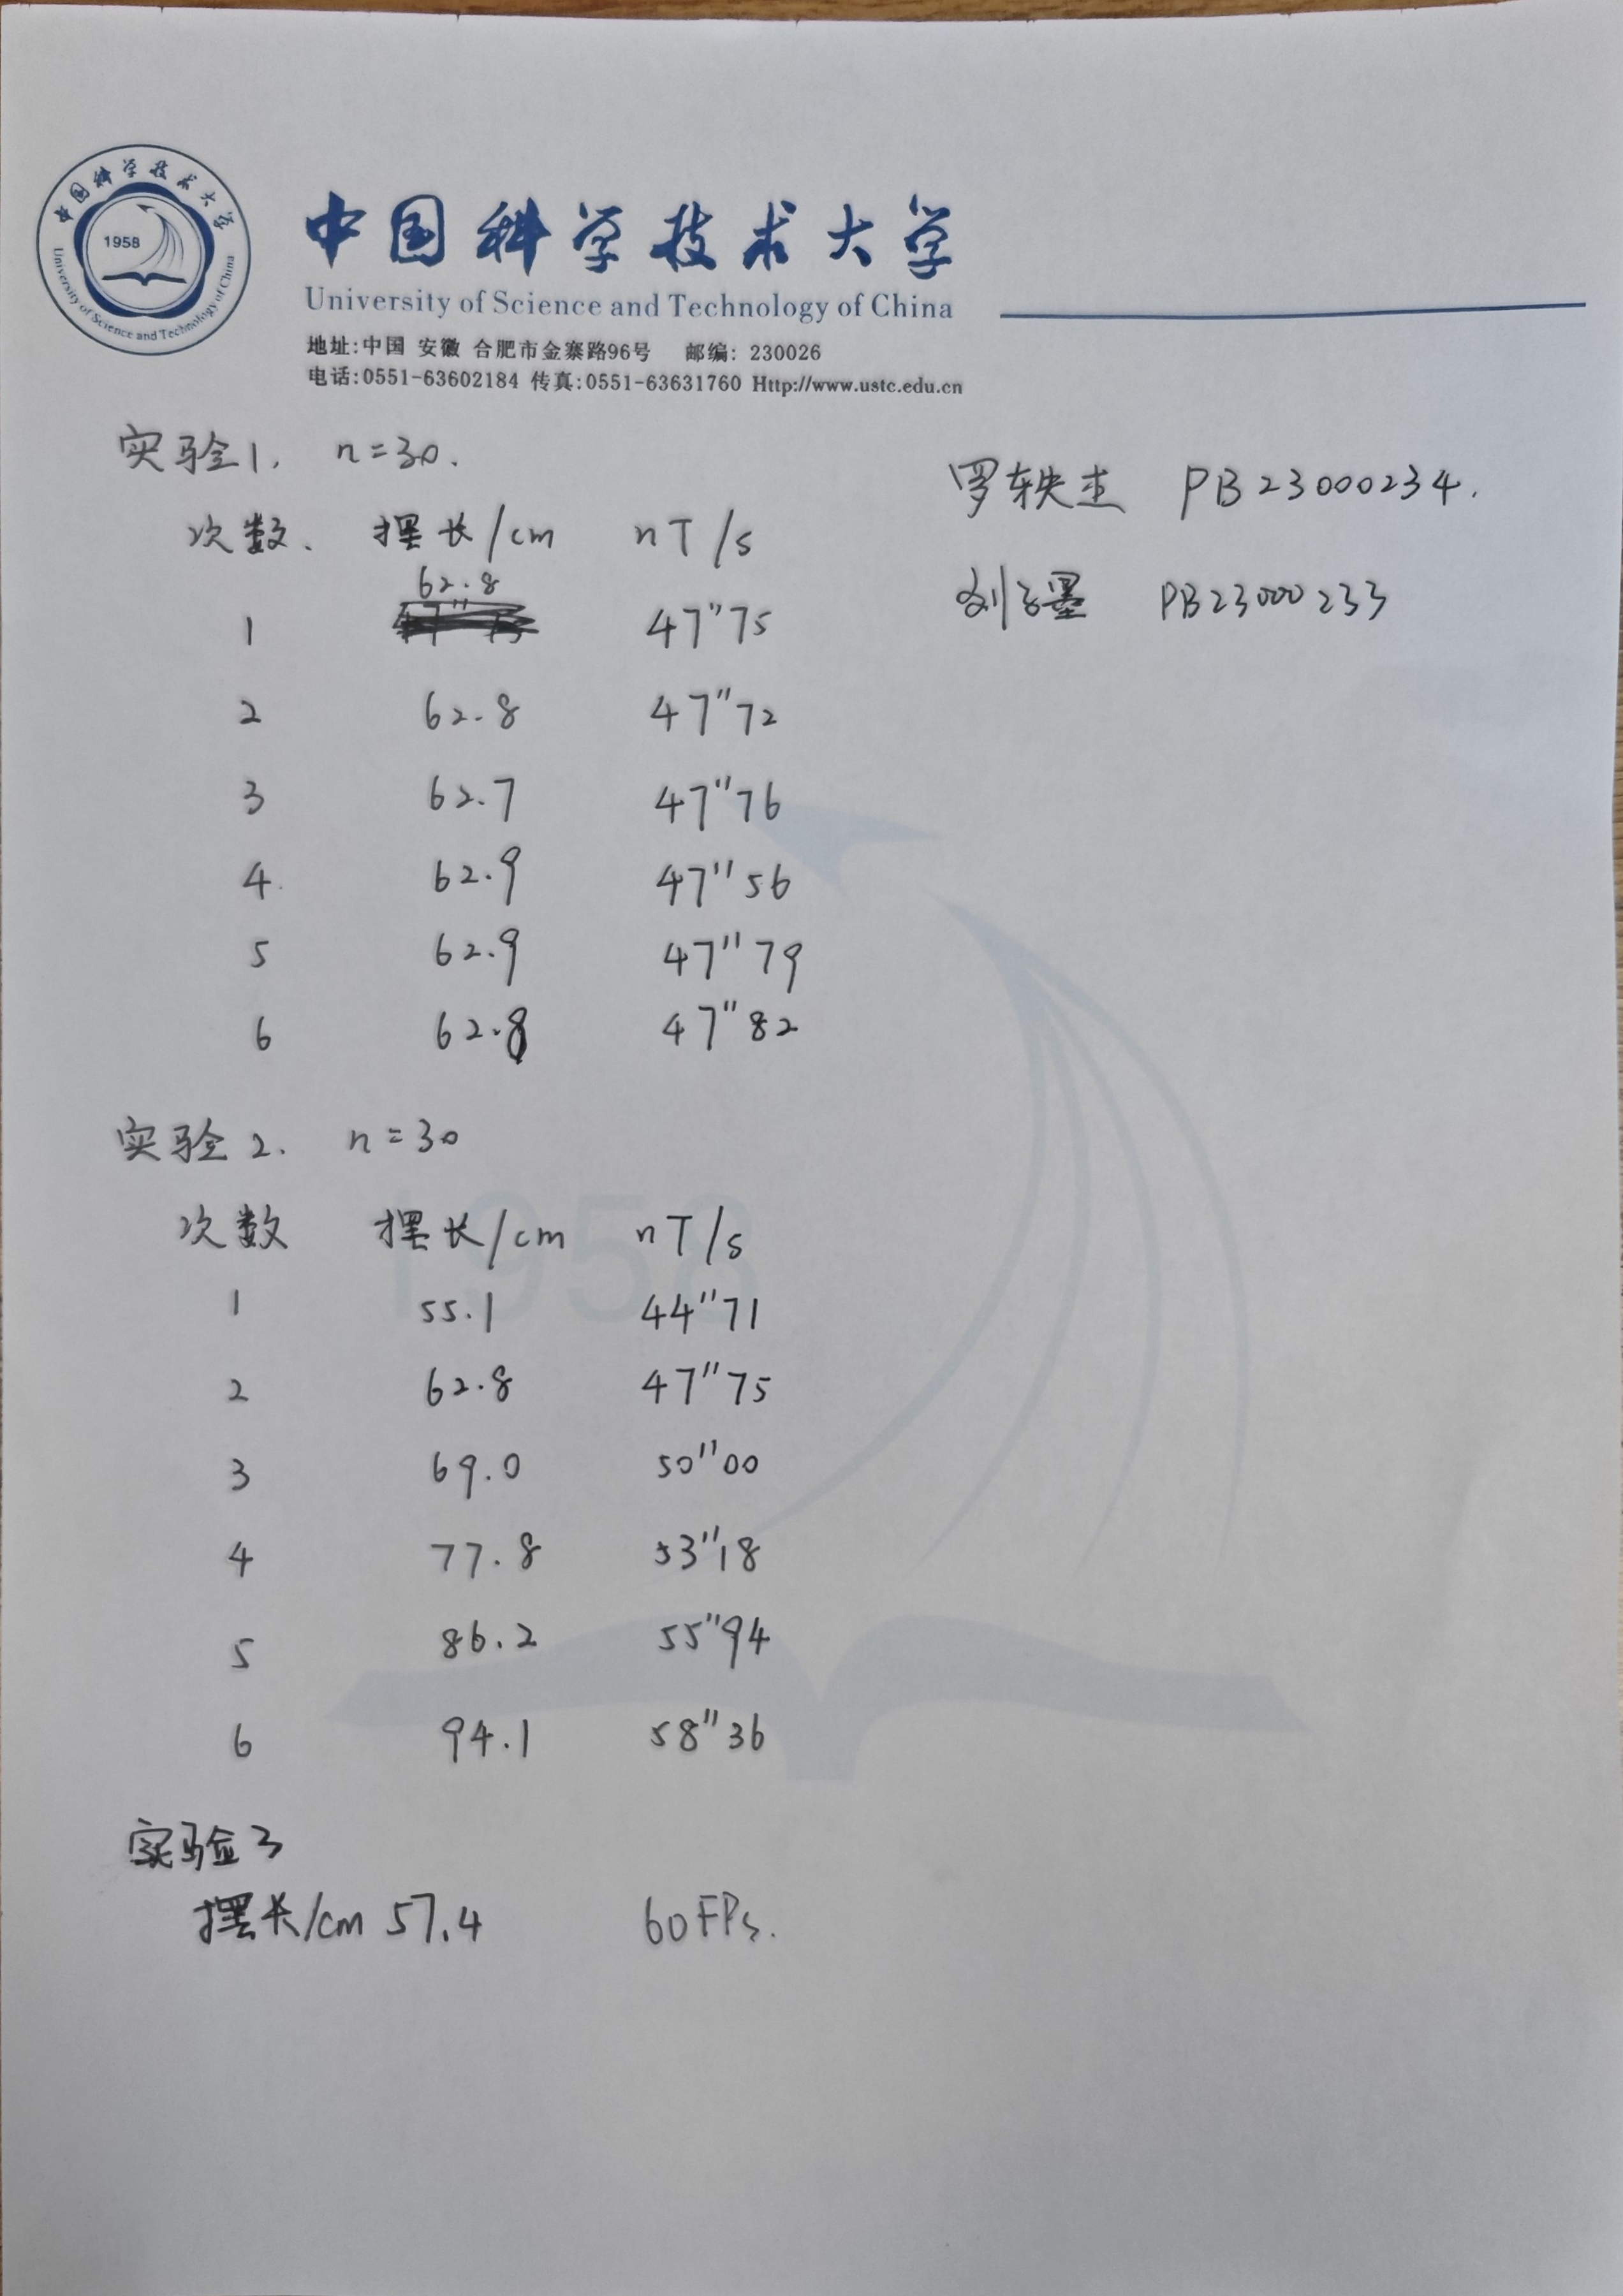 中国科学技术大学
1958
University of Science and Technology of China
中国科学技术大学
University of Science and Technology of China
地址:中国 安徽 合肥市金寨路96号 邮编: 230026
电话:0551-63602184 传真:0551-63631760 Http://www.ustc.edu.cn
实验1. n=30.
罗轶杰 PB23000234.
刘子墨 PB23000233
次数. 摆长/cm nT/s
1 62.8 47"75
2 62.8 47"72
3 62.7 47"76
4. 62.9 47"56
5 62.9 47"79
6 62.8 47"82
实验2. n=30
1958
次数 摆长/cm nT/s
1 55.1 44"71
2 62.8 47"75
3 69.0 50"00
4 77.8 53"18
5 86.2 55"94
6 94.1 58"36
实验3
摆长/cm 57.4 60FPs.